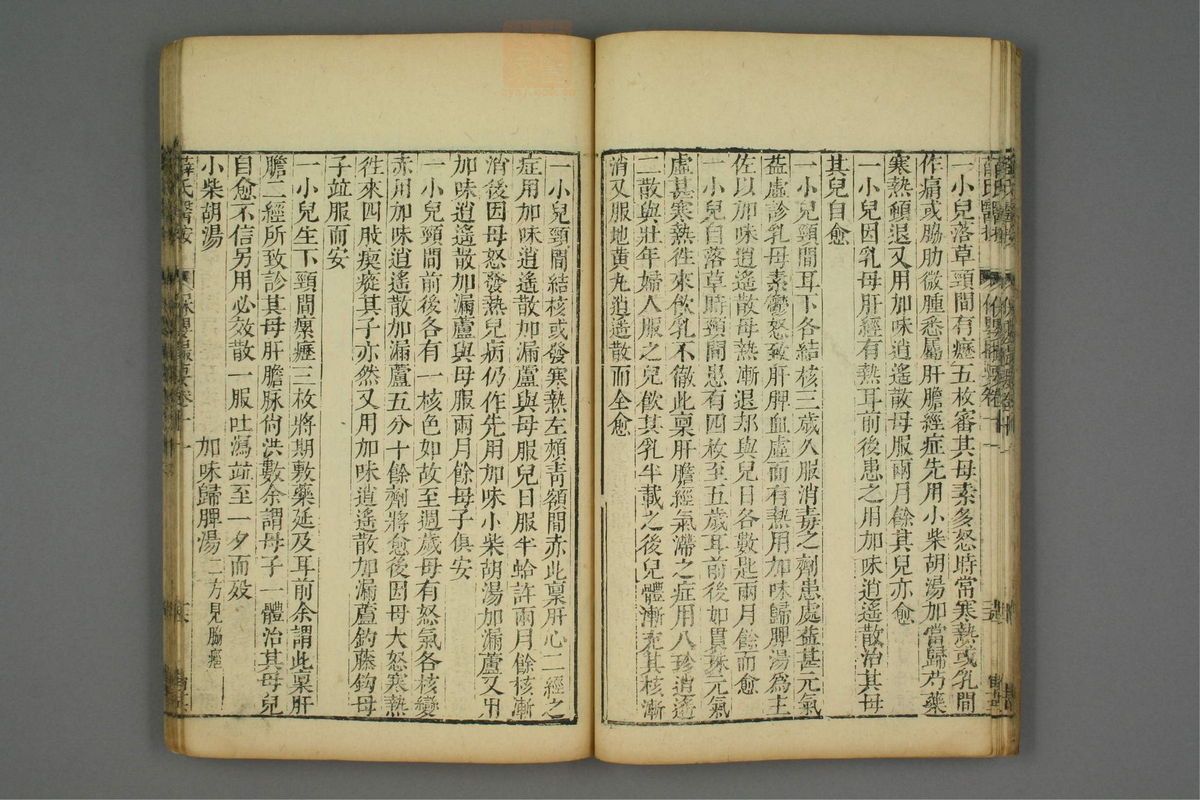 一小兒落草頸間有癧五枚審其母素多怒時常寒熱或乳間
作痛或脇肋微腫悉屬肝膽經症先用小柴胡湯加當歸芍藥
寒熱頓退又用加味逍遙散母服兩月餘其兒亦愈
一小兒因乳母肝經有熱耳前後患之用加味逍遙散治其母
其兒自愈
一小兒頸間耳下各結核三歲久服消毒之劑患處益甚元氣
益虛診乳母素鬱怒致肝脾血虛而有熱用加味歸脾湯為主
佐以加味逍遙散母熱漸退却與兒日各數匙兩月餘而愈
一小兒自落草時頸間患有四枚至五歲耳前後如貫珠元氣
虛甚寒熱徃來飲乳不徹此稟肝膽經氣滯之症用八珍逍遙
二散與壯年婦人服之兒飲其乳半載之後兒體漸充其核漸
消又服地黄丸逍遙散而全愈
一小兒頸間結核或發寒熱左頰青額間赤此稟肝心二經之
症用加味逍遙散加漏蘆與母服兒日服半蛤許兩月餘核漸
消後因母怒發熱兒病仍作先用加味小柴胡湯加漏蘆又用
加味逍遙散加漏蘆與母服兩月餘母子俱安
一小兒頸間前後各有一核色如故至週歲母有怒氣各核變
赤用加味逍遙散加漏蘆五分十餘劑將愈後因母大怒寒熱
徃來四肢瘈瘲其子亦然又用加味逍遙散加漏蘆鈎藤鈎母
子竝服而安
一小兒生下頸間瘰癧三枚將期敷藥延及耳前余謂此稟肝
膽二經所致診其母肝膽脉尙洪數余謂母子一體治其母兒
自愈不信另用必效散一服吐瀉竝至一夕而殁
小柴胡湯 加味歸脾湯二方見胸癰
薛氏醫按 保嬰撮要卷十一